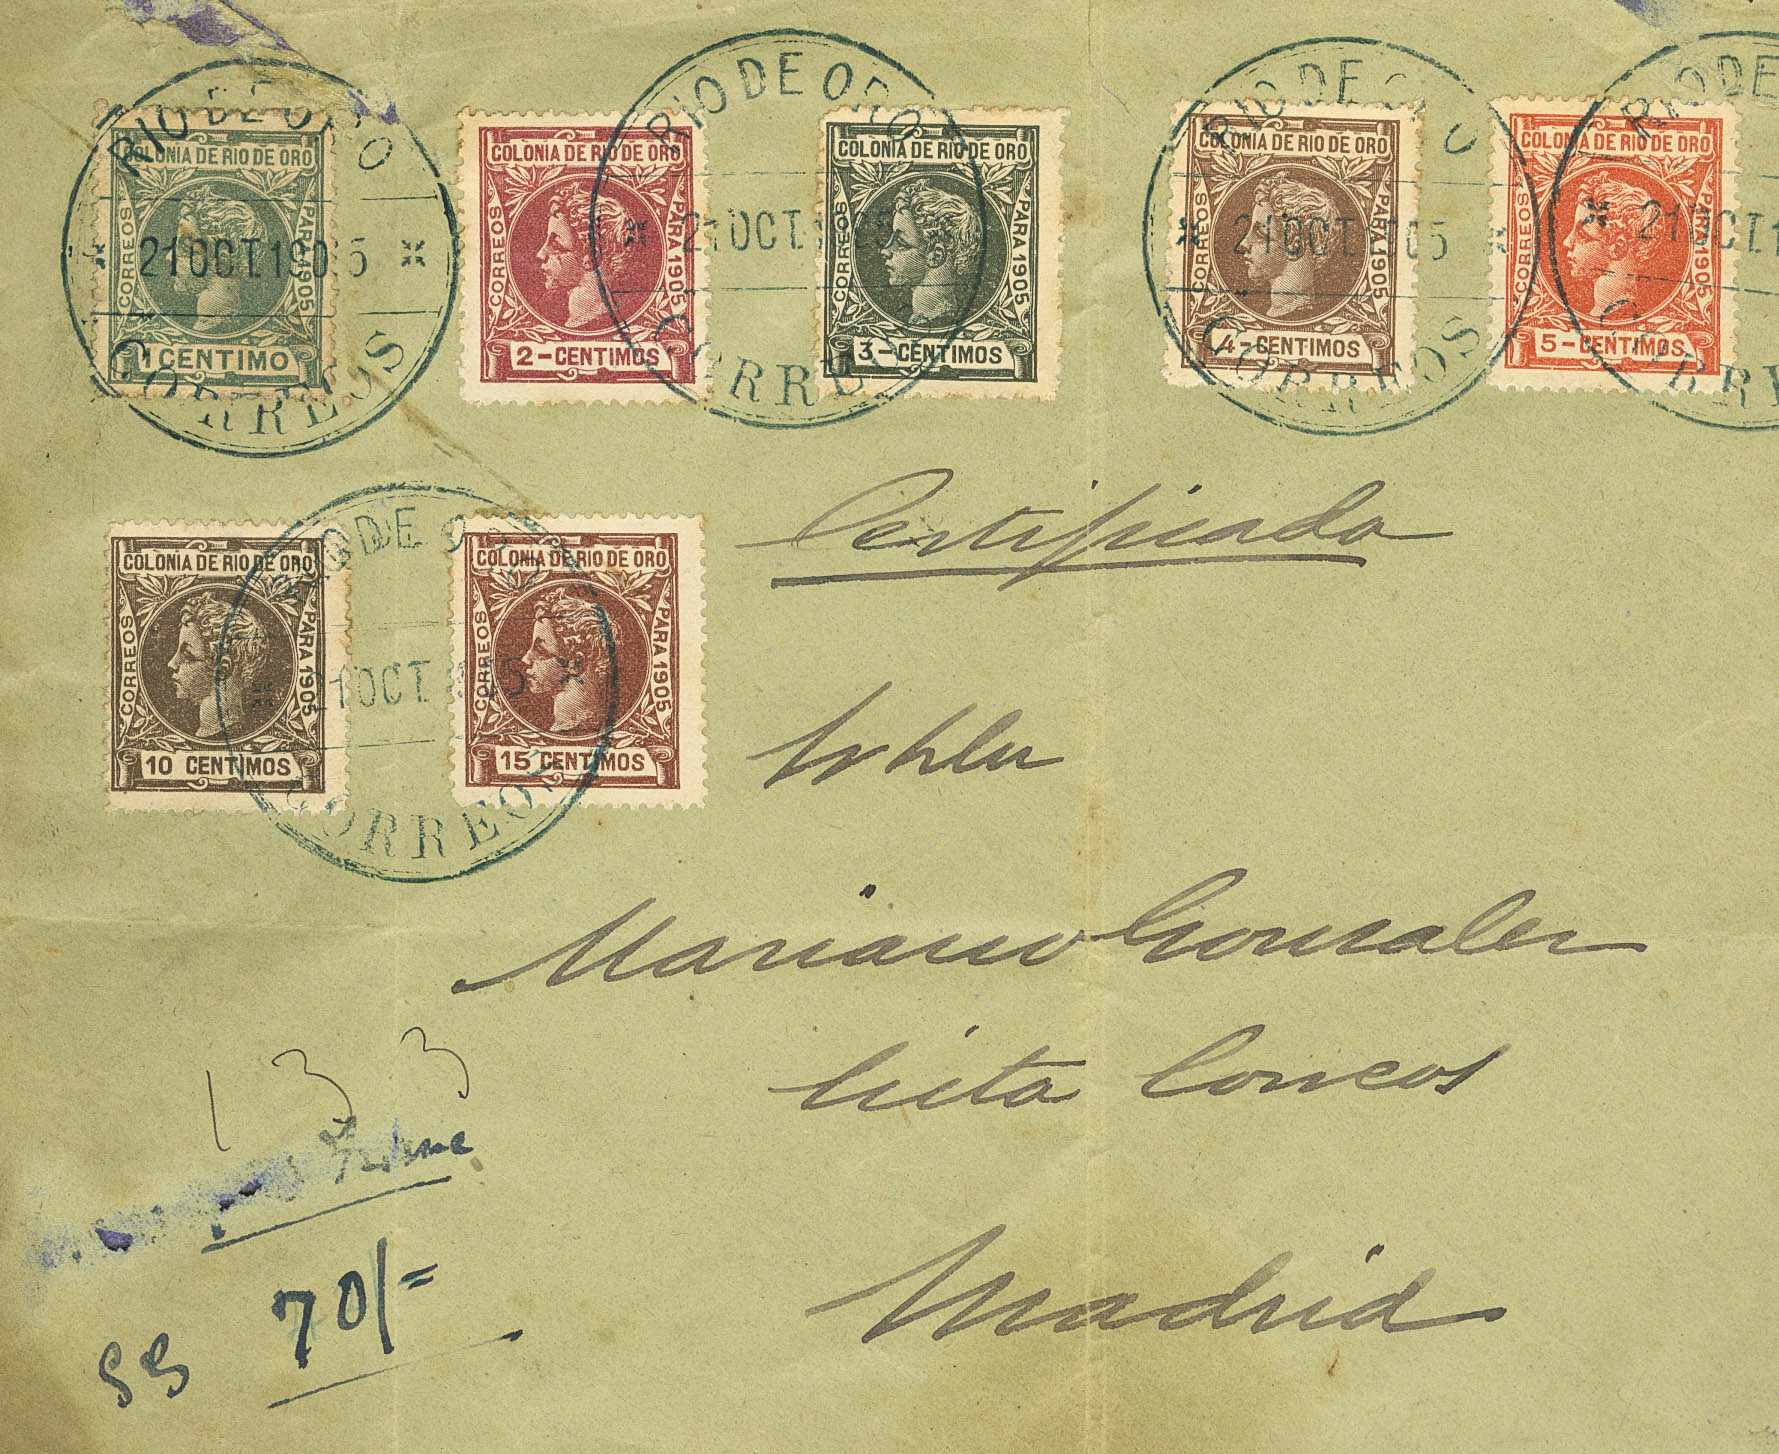 COLONIA DE RIO DE ORO
CORREOS
PARA 1905
1 CENTIMO
COLONIA DE RIO DE ORO
CORREOS
PARA 1905
2-CENTIMOS
COLONIA DE RIO DE ORO
CORREOS
PARA 1905
3-CENTIMOS
COLONIA DE RIO DE ORO
CORREOS
PARA 1905
4-CENTIMOS
COLONIA DE RIO DE ORO
CORREOS
PARA 1905
5-CENTIMOS
RIO DE ORO
21 OCT. 1905
CORREOS
RIO DE ORO
21 OCT. 1905
CORREOS
RIO DE ORO
21 OCT. 1905
CORREOS
RIO DE
21 OCT. 1
CORR
COLONIA DE RIO DE ORO
CORREOS
PARA 1905
10 CENTIMOS
COLONIA DE RIO DE ORO
CORREOS
PARA 1905
15 CENTIMOS
RIO DE ORO
21 OCT. 1905
CORREOS
Certificado
Mariano Gonzalez
Lista Correos
Madrid
133
70/=
SS